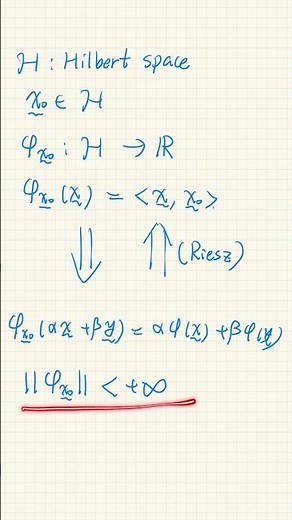 H : Hilbert space
x₀ ∈ H
φ_x₀ : H → ℝ
φ_x₀(x) = <x, x₀>
⇓ ⇑ (Riesz)
φ_x₀(αx + βy) = αφ(x) + βφ(y)
||φ_x₀|| < +∞